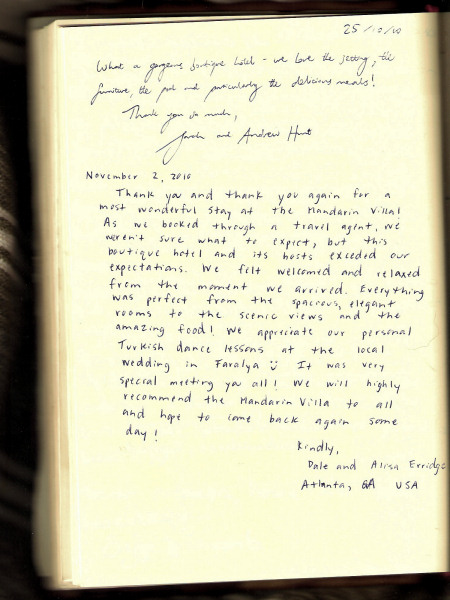 25/10/10
What a gorgeous boutique hotel - we love the setting, the
furniture, the pool and particularly the delicious meals!
Thank you so much,
Sarah and Andrew Hunt
November 2, 2010
Thank you and thank you again for a
most wonderful stay at the Mandarin Villa!
As we booked through a travel agent, we
weren't sure what to expect, but this
boutique hotel and its hosts exceded our
expectations. We felt welcomed and relaxed
from the moment we arrived. Everything
was perfect from the spacious, elegant
rooms to the scenic views and the
amazing food! We appreciate our personal
Turkish dance lessons at the local
wedding in Faralya It was very
special meeting you all! We will highly
recommend the Mandarin Villa to all
and hope to come back again some
day!
Kindly,
Dale and Alisa Erridge
Atlanta, GA USA